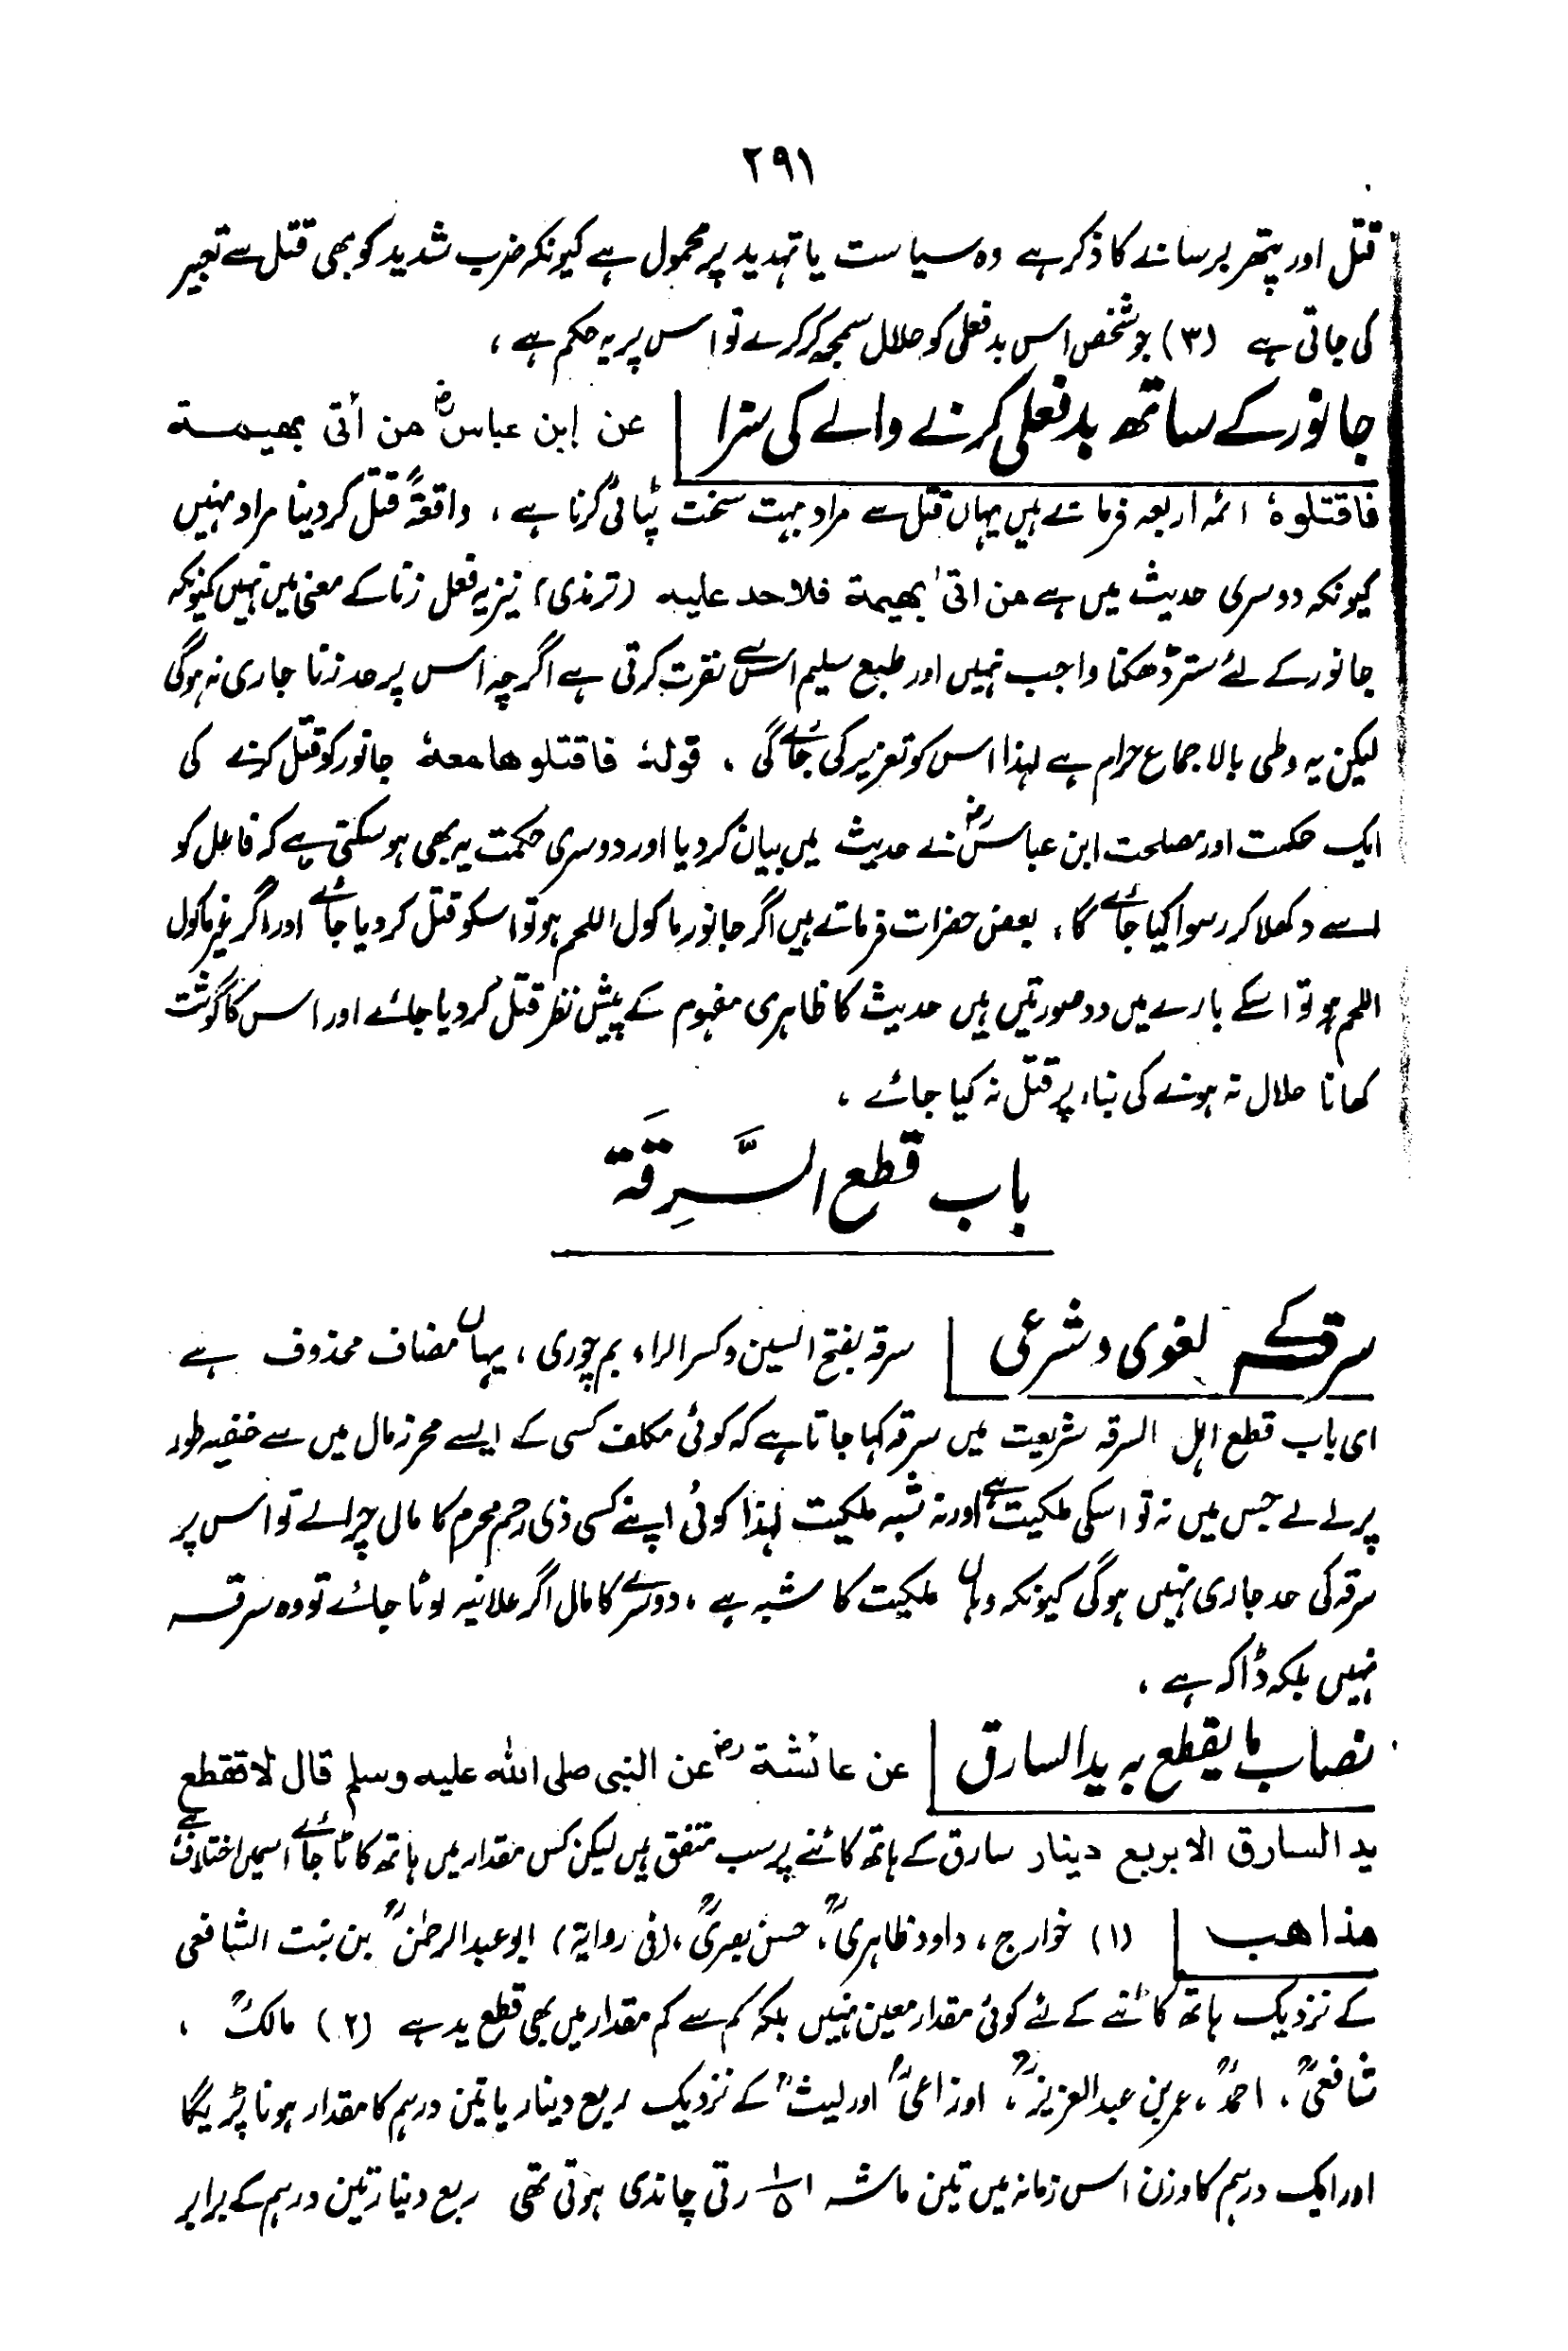 ۲۹۱
قتل اور پتھر برسانے کا ذکر ہے وہ سیاست یا تہدید پر محمول ہے کیونکہ ضرب شدید کو بھی قتل سے تعبیر
کی جاتی ہے (۳) جو شخص اس بدفعلی کو حلال سمجھ کر کرے تو اس پر یہ حکم ہے ،
جانور کے ساتھ بدفعلی کرنے والے کی سزا عن إبن عباسؓ من أتی بھیمة
فاقتلوہٗ ائمہ اربعہ فرماتے ہیں یہاں قتل سے مراد بہت سخت پٹائی کرنا ہے ، واقعۃً قتل کردینا مراد نہیں
کیونکہ دوسری حدیث میں ہے من اتیٰ بھیمة فلاحد علیہ (ترمذی) نیز یہ فعل زنا کے معنی میں نہیں کیونکہ
جانور کے لئے ستر ڈھکنا واجب نہیں اور طبع سلیم اس سے نفرت کرتی ہے اگرچہ اس پر حد زنا جاری نہ ہوگی
لیکن یہ وطی بالاجماع حرام ہے لہذا اس کو تعزیر کی جائے گی ، قولہٗ فاقتلوھا معہٗ جانور کو قتل کرنے کی
ایک حکمت اور مصلحت ابن عباسؓ نے حدیث میں بیان کردیا اور دوسری حکمت یہ بھی ہوسکتی ہے کہ فاعل کو
اسے دکھلا کر رسوا کیا جائے گا ، بعض حضرات فرماتے ہیں اگر جانور ماکول اللحم ہو تو اسکو قتل کردیا جائے اور اگر غیر ماکول
اللحم ہو تو اسکے بارے میں دو صورتیں ہیں حدیث کا ظاہری مفہوم کے پیش نظر قتل کردیا جائے اور اس کا گوشت
کھانا حلال نہ ہونے کی بناء پر قتل نہ کیا جائے ،
باب قطع السَّرِقَة
سرقہ کے لغوی و شرعی سرقہ بفتح السین وکسر الراء بم چوری ، یہاں مضاف محذوف ہے
ای باب قطع اہل السرقہ شریعت میں سرقہ کہا جاتا ہے کہ کوئی مکلف کسی کے ایسے محرز مال میں سے خفیہ طور
پر لے لے جس میں نہ تو اسکی ملکیت ہے اور نہ شبہ ملکیت لہذا کوئی اپنے کسی ذی رحم محرم کا مال چرالے تو اس پر
سرقہ کی حد جاری نہیں ہوگی کیونکہ وہاں ملکیت کا شبہ ہے ، دوسرے کا مال اگر علانیہ لوٹا جائے تو وہ سرقہ
نہیں بلکہ ڈاکہ ہے ،
نصاب ما یقطع بہ ید السارق عن عائشة رضؓ عن النبی صلی اللہ علیہ وسلم قال لا تقطع
ید السارق الا بربع دینار سارق کے ہاتھ کاٹنے پر سب متفق ہیں لیکن کس مقدار میں ہاتھ کاٹا جائے اسمیں اختلاف ہے
مذاھب (۱) خوارج ، داود ظاہریؒ ، حسن بصریؒ ، (فی روایۃ) ابو عبدالرحمٰنؒ بن بنت الشافعی
کے نزدیک ہاتھ کاٹنے کے لئے کوئی مقدار معین نہیں بلکہ کم سے کم مقدار میں بھی قطع ید ہے (۲) مالکؒ ،
شافعیؒ ، احمدؒ ، عمر بن عبدالعزیزؒ ، اوزاعیؒ اور لیثؒ کے نزدیک ربع دینار یا تین درہم کا مقدار ہونا پڑیگا
اور ایک درہم کا وزن اس زمانہ میں تین ماشہ ۱ ۱/۵ رتی چاندی ہوتی تھی ربع دینار تین درہم کے برابر